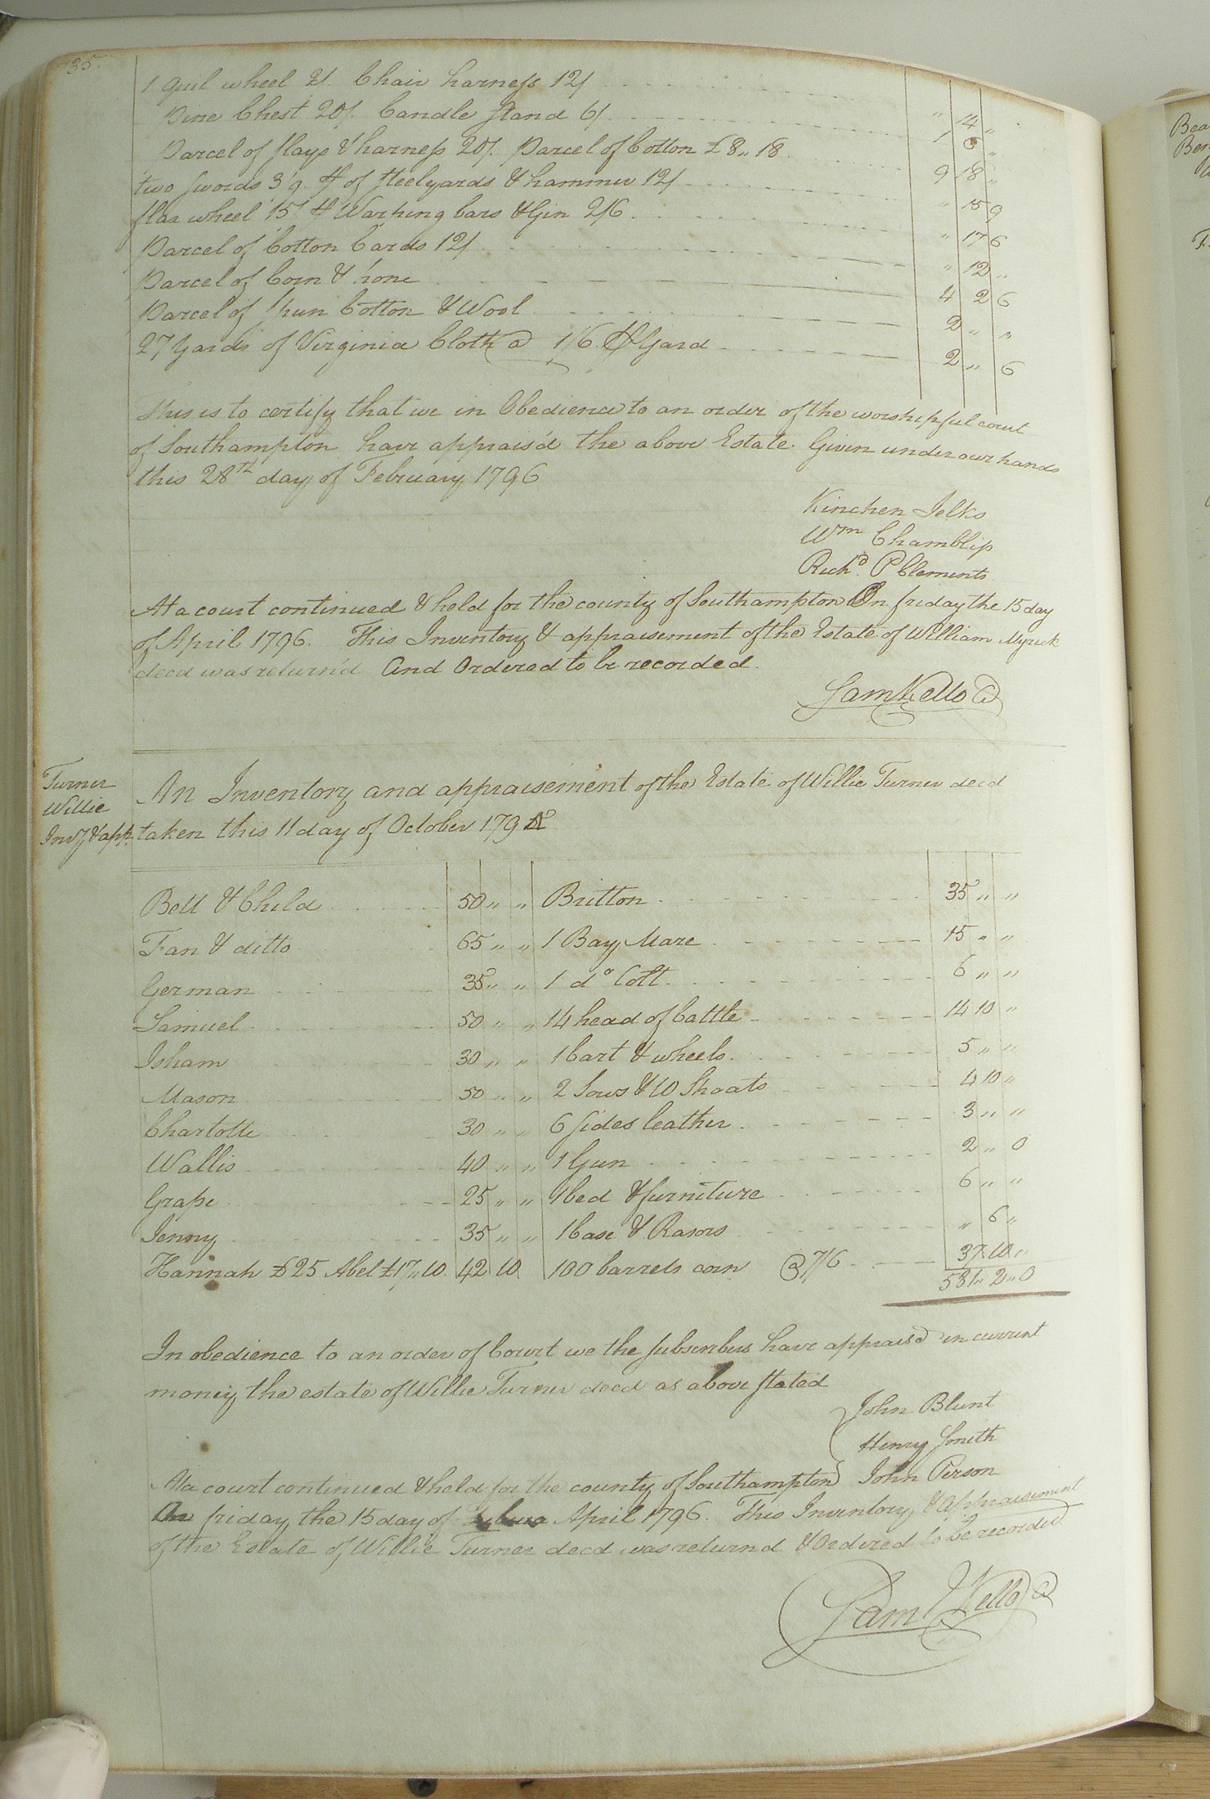 35.
1 quil wheel 2/. Chair harness 12/ " 14 "
Pine Chest 20/. Candle stand 6/ 1 6 "
Parcel of slays & harness 20/. Parcel of Cotton £8,,18 9 18 "
two swords 3/9 of steelyards & hammer 12/ " 15 9
flax wheel 15/ Warping bars & Gin 2/6 " 17 6
Parcel of Cotton Cards 12/ " 12 "
Parcel of Corn & hone 4 2 6
Parcel of spun Cotton & Wool 2 " "
27 Yards of Virginia Cloth @ 1/6 Yard 2 " 6
This is to certify that we in Obedience to an order of the worshipful court
of Southampton have apprais'd the above Estate. Given under our hands
this 28th day of February 1796
Kinchen Jelks
Wm Chambliss
Richd. P Clements
At a court continued & held for the county of Southampton On friday the 15 day
of April 1796. This Inventory & appraisement of the Estate of William Myrick
decd was return'd And Ordered to be recorded.
Sam Kello
Turner
Willie
Invy & app.
An Inventory and appraisement of the Estate of Willie Turner decd
taken this 11 day of October 179
Bett & Child 50 " " Britton 35 " "
Fan & ditto 65 " " 1 Bay Mare 15 " "
German 35 " " 1 do Colt 6 " "
Samuel 50 " " 14 head of Cattle 14 10 "
Isham 30 " " 1 Cart & wheels 5 " "
Mason 50 " " 2 Sows & 10 Shoats 4 10 "
Charlotte 30 " " 6 sides leather 3 " "
Wallis 40 " " 1 Gun 2 " 0
Grape 25 " " 1 bed & furniture 6 " "
Jenny 35 " " 1 Case & Rasors " 6 "
Hannah £25 Abel £17,,10 42 10 100 barrels corn @ 7/6 37 10 "
581,, 2,, 0
In obedience to an order of Court we the subscribers have apprais'd in current
money the estate of Willie Turner decd as above stated
John Blunt
Henry Smith
John Person
At a court continued & held for the county of Southampton
On friday the 15 day of April 1796. This Inventory & appraisement
of the Estate of Willie Turner decd was returnd & Ordered to be recorded
Sam Kello